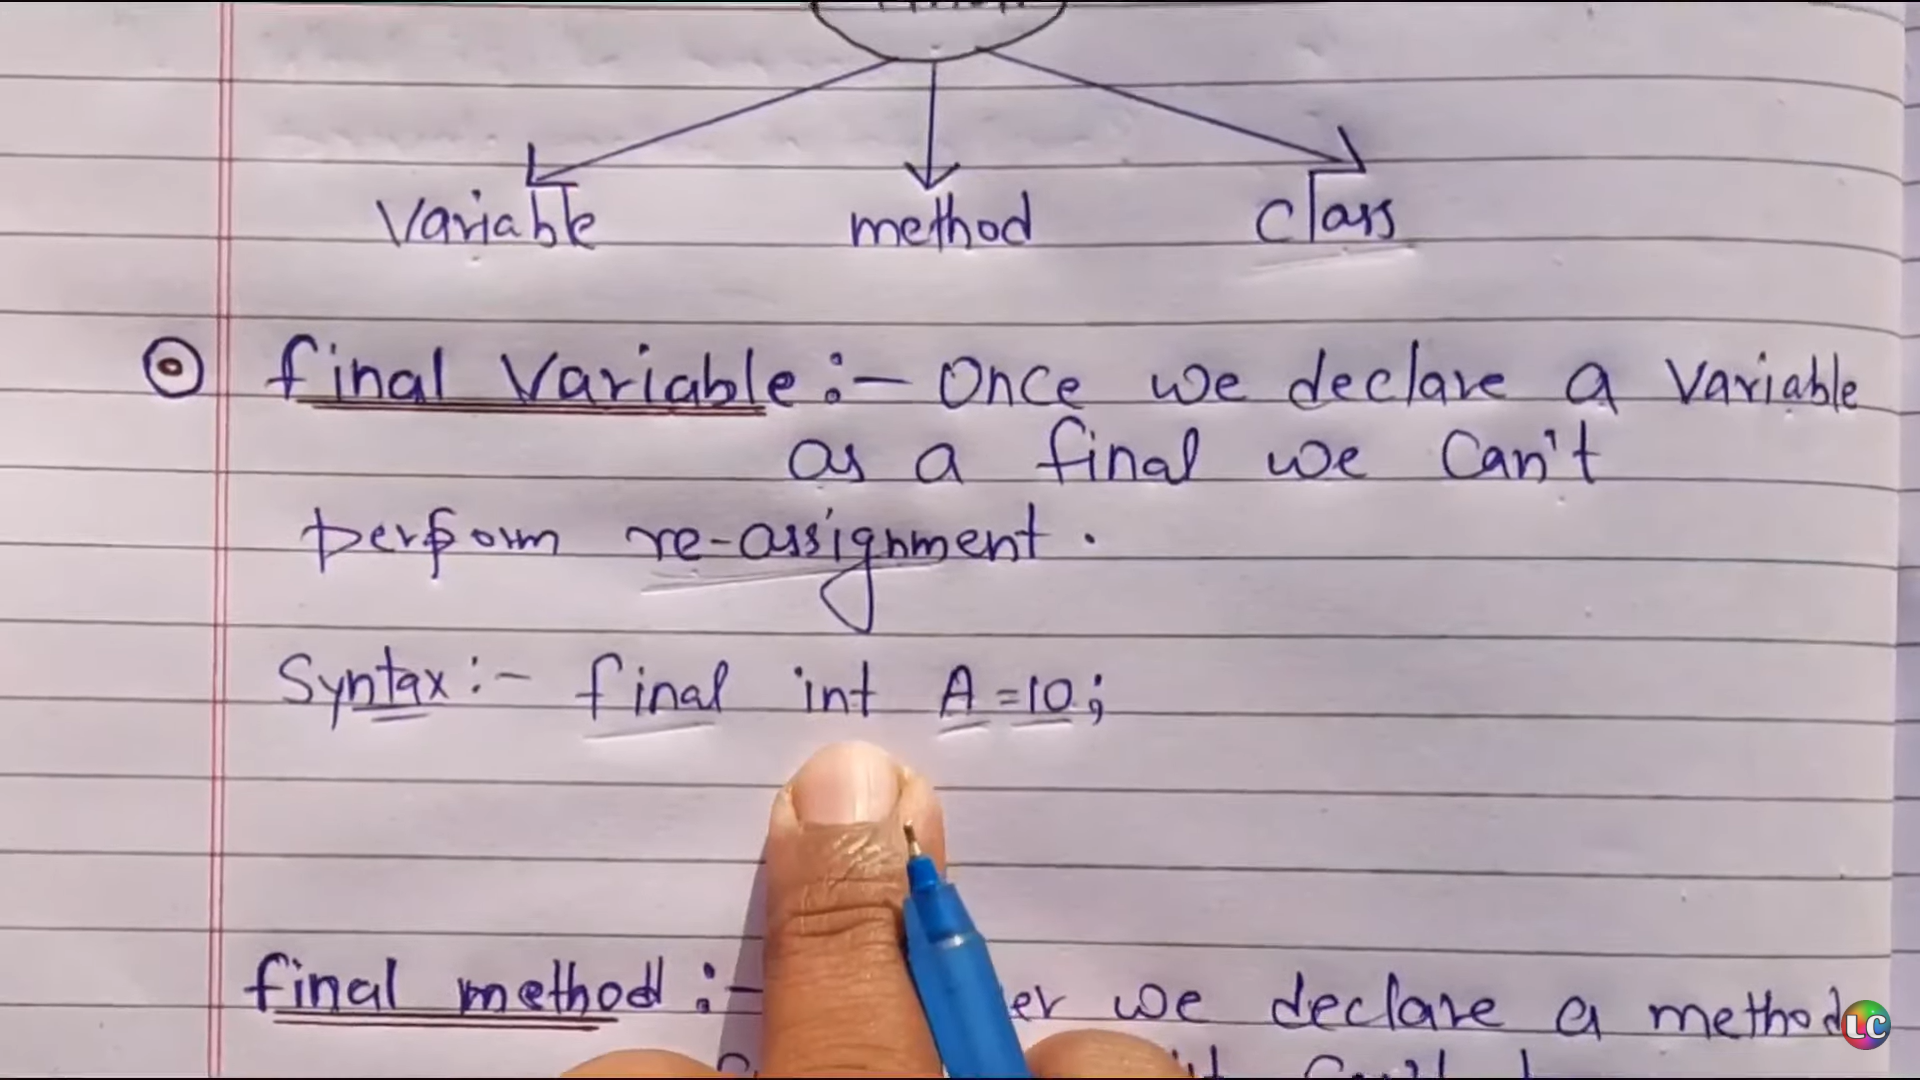 Variable method Class
final Variable :- Once we declare a Variable
as a final we Can't
perform re-assignment.
Syntax :- final int A = 10;
final method :- er we declare a method
Can't
LC